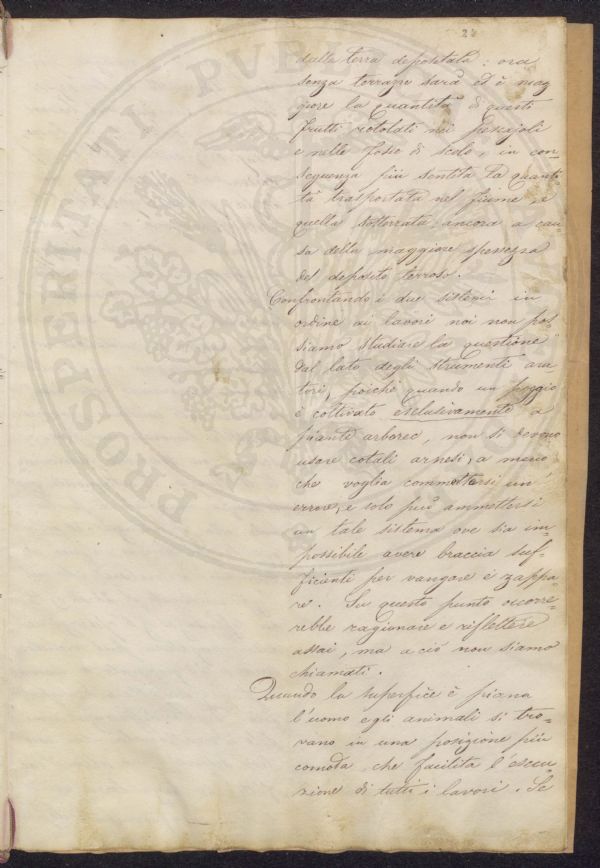 24
dalla terra depositata: ora
senza terrazze sarà ed è mag
giore la quantità di questi
frutti rotolati nei Pescajoli
e nelle fosse di scolo, in con=
seguenza più sentita la quanti
tà trasportata nel fiume, e
quella sotterrata ancora a cau
sa della maggiore spessezza
del deposito terroso.
Confrontando i due sistemi in
ordine ai lavori noi non pos=
siamo studiare la questione
dal lato degli strumenti ara
tori, poichè quando un poggio
è coltivato esclusivamente a
piante arboree, non si devono
usare cotali arnesi, a meno
che voglia commettersi un'
errore, e solo può ammettersi
un tale sistema ove sia im=
possibile avere braccia suf=
ficienti per vangare e zappa=
re. Su questo punto occorre=
rebbe ragionare e riflettere
assai, ma a ciò non siamo
chiamati.
Quando la superfice è piana
l'uomo e gli animali si tro=
vano in una posizione più
comoda, che facilita l'esecu
zione di tutti i lavori. Se
PROSPERITATI PUB